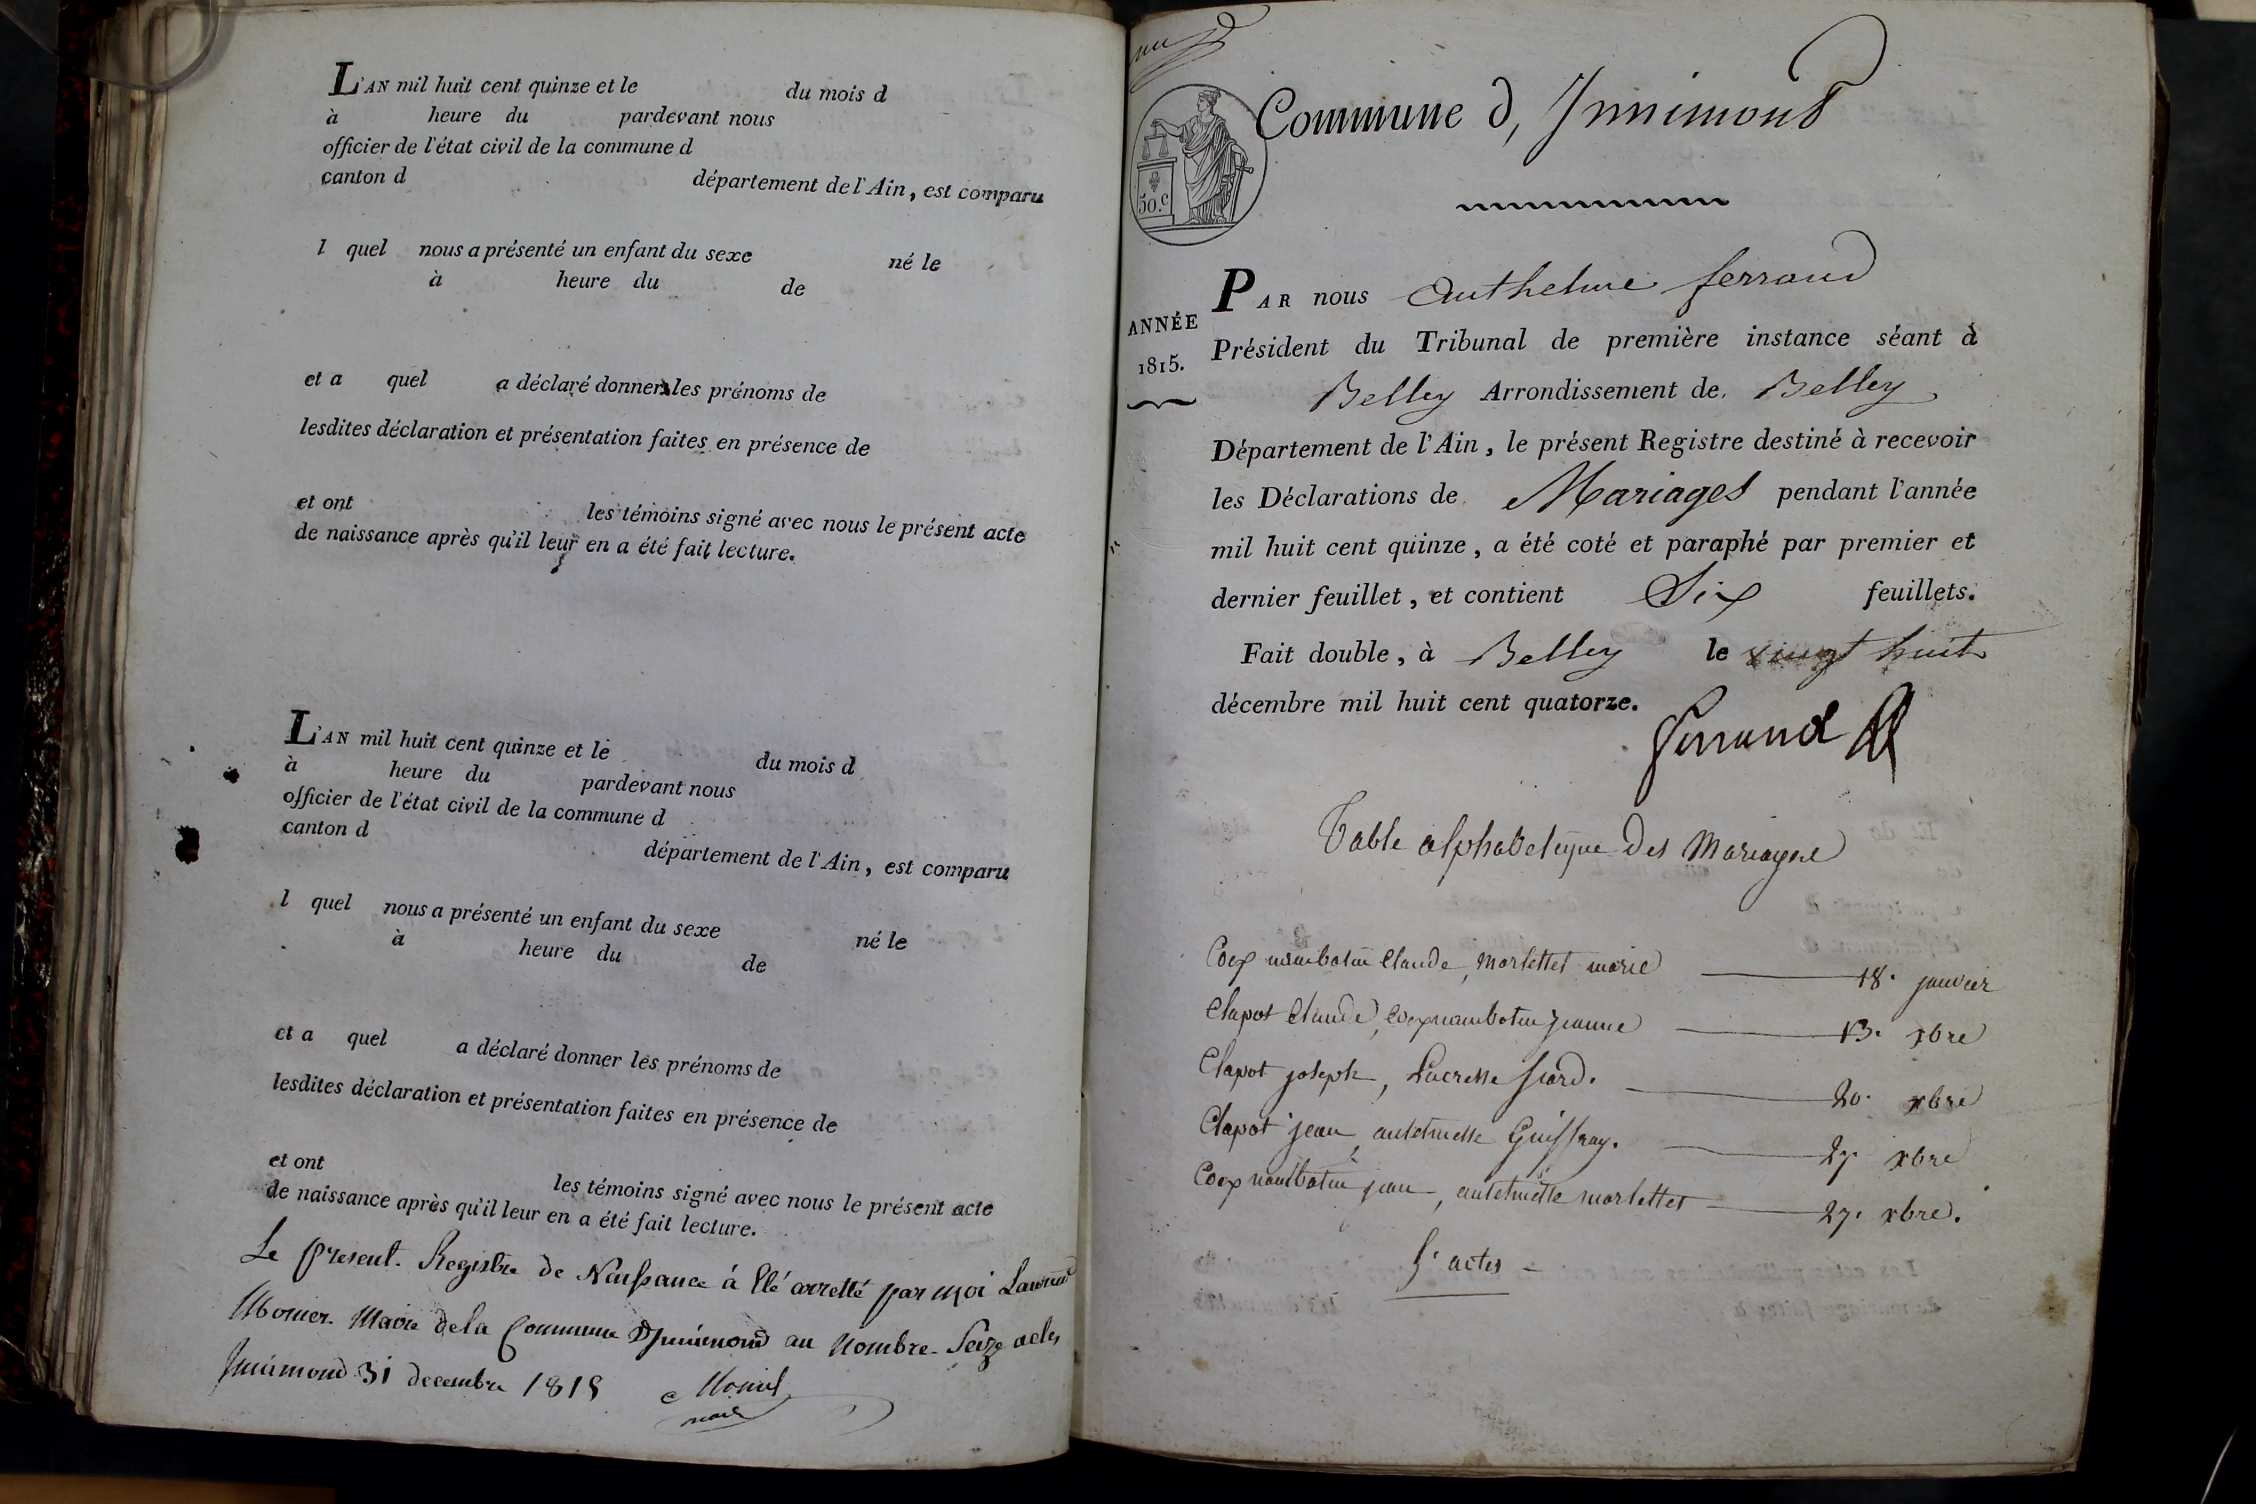 L'AN mil huit cent quinze et le du mois d
à heure du pardevant nous
officier de l'état civil de la commune d
canton d département de l'Ain, est comparu
l quel nous a présenté un enfant du sexe né le
à heure du de
et a quel a déclaré donner les prénoms de
lesdites déclaration et présentation faites en présence de
et ont les témoins signé avec nous le présent acte
de naissance après qu'il leur en a été fait lecture.
L'AN mil huit cent quinze et le du mois d
à heure du pardevant nous
officier de l'état civil de la commune d
canton d département de l'Ain, est comparu
l quel nous a présenté un enfant du sexe né le
à heure du de
et a quel a déclaré donner les prénoms de
lesdites déclaration et présentation faites en présence de
et ont les témoins signé avec nous le présent acte
de naissance après qu'il leur en a été fait lecture.
Le present Registre de Naissance à Eté arretté par moi
Monier Maire de la Commune D'Innimond au Nombre Seize actes
Innimond 31 decembre 1815
Commune d, Innimond
50.c
PAR nous Anthelme ferrand
ANNÉE
1815.
Président du Tribunal de première instance séant à
Belley Arrondissement de Belley
Département de l'Ain, le présent Registre destiné à recevoir
les Déclarations de Mariages pendant l'année
mil huit cent quinze, a été coté et paraphé par premier et
dernier feuillet, et contient Six feuillets.
Fait double, à Belley le vingt huit
décembre mil huit cent quatorze.
Ferrand
Table alphabetique Des Mariages
Coex nambotin Claude, morlettet marie 18. janvier
Clapot Claude, coexnambotin jeanne 13. xbre
Clapot joseph, Lucresse fiard. 20. xbre
Clapot jean, antelmette Guiffray. 27. xbre
Coex nambotin jean, antelmette morlettet 27. xbre.
5. actes